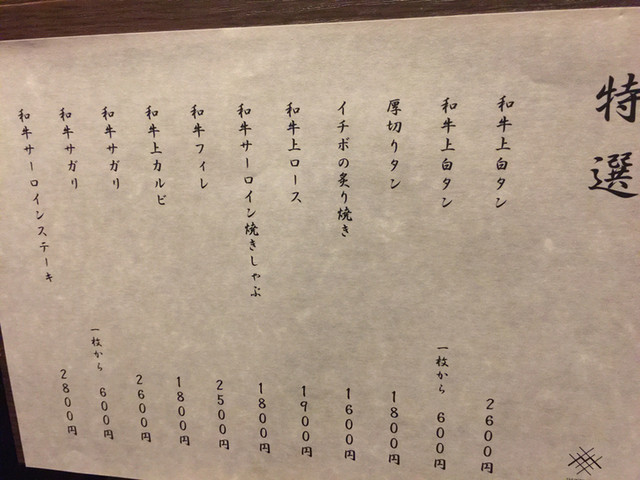 特選
和牛上白タン 2600円
和牛上白タン 一枚から 600円
厚切りタン 1800円
イチボの炙り焼き 1600円
和牛上ロース 1900円
和牛サーロイン焼きしゃぶ 1800円
和牛フィレ 2500円
和牛上カルビ 1800円
和牛サガリ 2600円
和牛サガリ 一枚から 600円
和牛サーロインステーキ 2800円